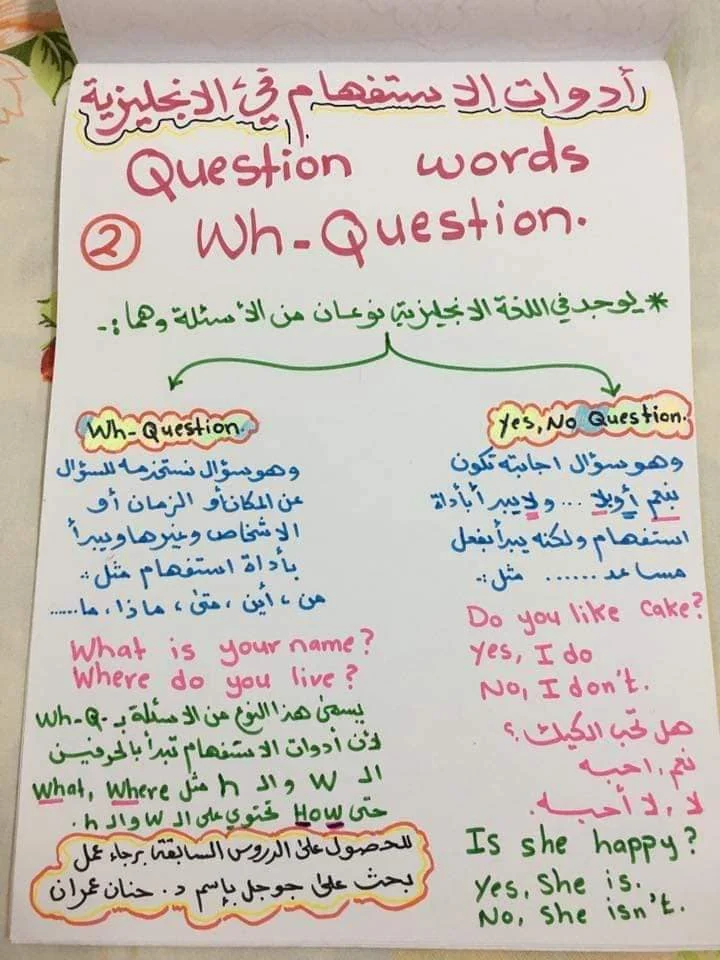 أدوات الاستفهام في الانجليزية
Question words
② Wh-Question.
* يوجد في اللغة الانجليزية نوعان من الأسئلة وهما :-
Yes, No Question.
وهو سؤال اجابته تكون
بنعم أو بلا ... ولا يبدأ بأداة
استفهام ولكنه يبدأ بفعل
مساعد ...... مثل :-
Do you like cake?
Yes, I do
No, I don't.
هل تحب الكيك ؟
نعم ، احبه
لا ، لا أحبه .
Is she happy?
Yes, She is.
No, she isn't.
Wh-Question.
وهو سؤال نستخدمه للسؤال
عن المكان أو الزمان أو
الاشخاص وغيرها ويبدأ
بأداة استفهام مثل :-
من ، أين ، متى ، ماذا ، ما ......
What is your name?
Where do you live?
يسمى هذا النوع من الاسئلة بـ Wh-Q-
لأن أدوات الاستفهام تبدأ بالحرفين
الـ w والـ h مثل What, Where
حتى How تحتوي على الـ w والـ h .
للحصول على الدروس السابقة برجاء عمل
بحث على جوجل بإسم د. حنان عمران